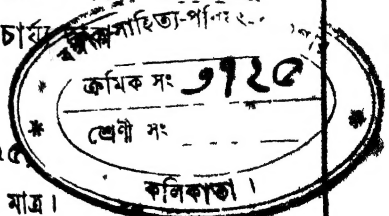 চার্য্য
সাহিত্য-পরিষৎ
ক্রমিক সং ৩৭২৫
শ্রেণী সং
কলিকাতা ।
মাত্র ।